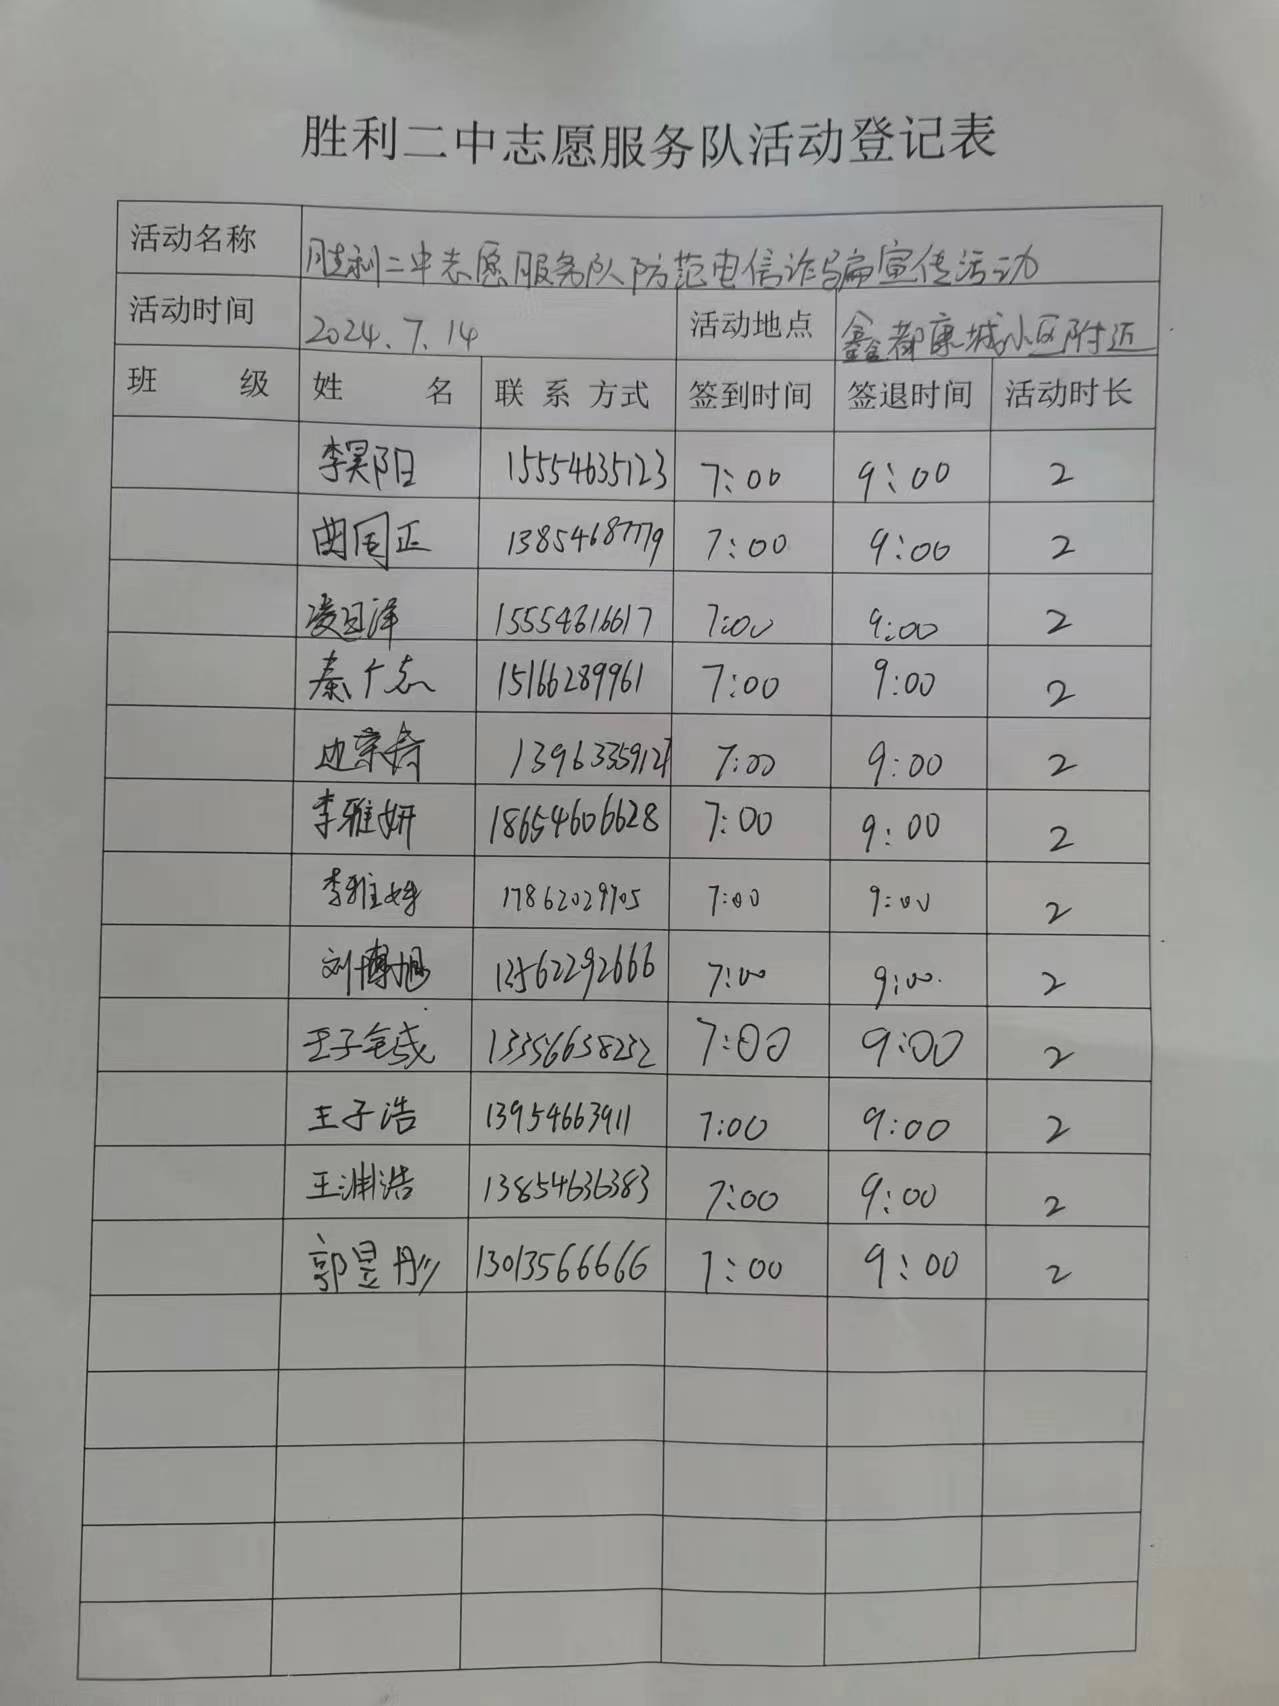 胜利二中志愿服务队活动登记表
活动名称 胜利二中志愿服务队防范电信诈骗宣传活动
活动时间 2024.7.14 活动地点 鑫都康城小区附近
班 级 姓 名 联 系 方式 签到时间 签退时间 活动时长
李昊阳 15554635123 7:00 9:00 2
曲国正 13854687779 7:00 9:00 2
15554816617 7:00 9:00 2
秦个志 15166289961 7:00 9:00 2
7:00 9:00 2
李雅妍 18654606628 7:00 9:00 2
李雅婷 17862029705 7:00 9:00 2
刘博旭 13562292666 7:00 9:00 2
王子 13356638232 7:00 9:00 2
王子浩 13954663911 7:00 9:00 2
王渊浩 13854636383 7:00 9:00 2
郭昱彤 13013566666 7:00 9:00 2